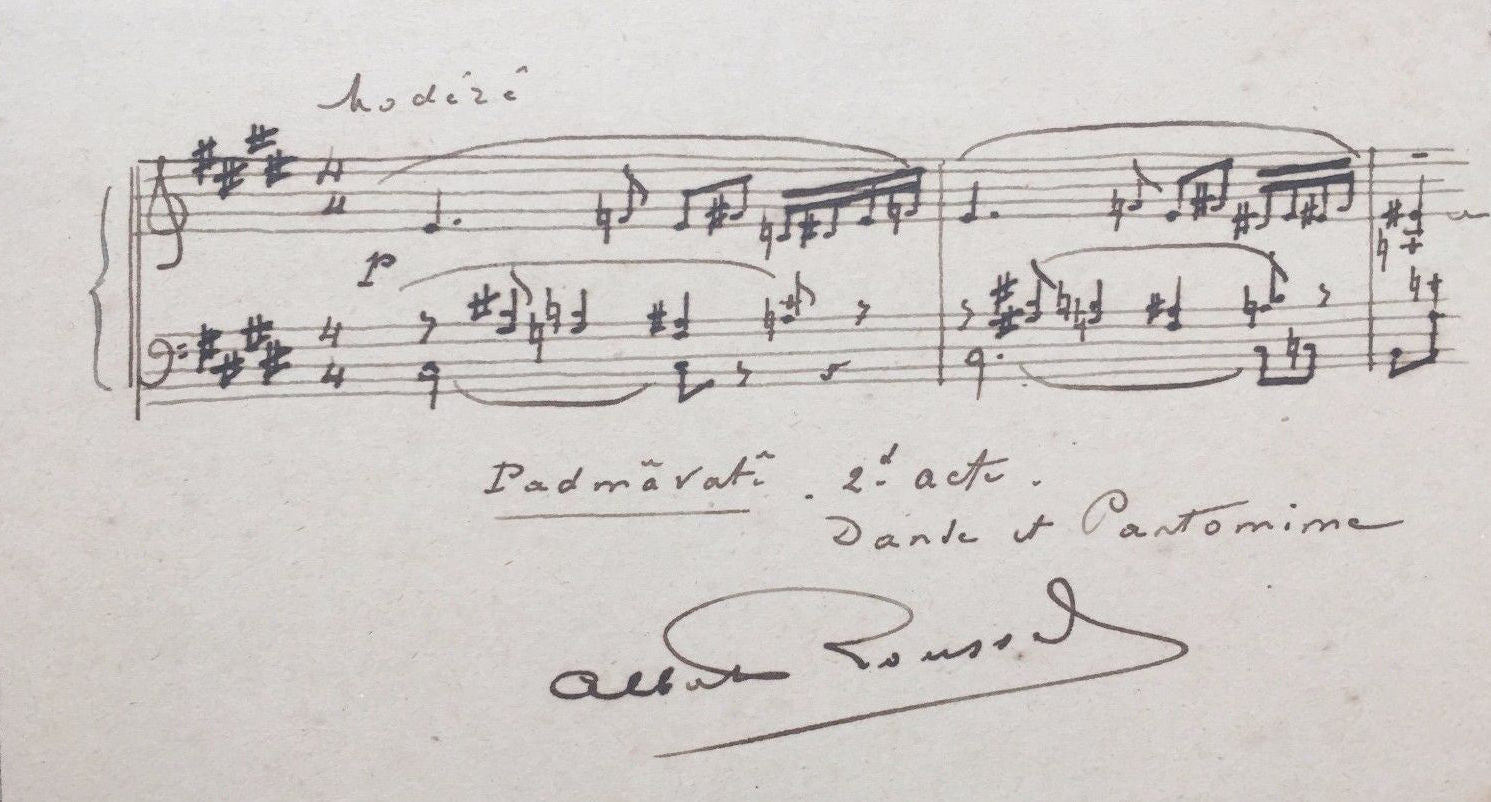 Modéré
4
4
p
4
4
Padmâvatî . 2d acte .
Danse et Pantomime
Albert Roussel